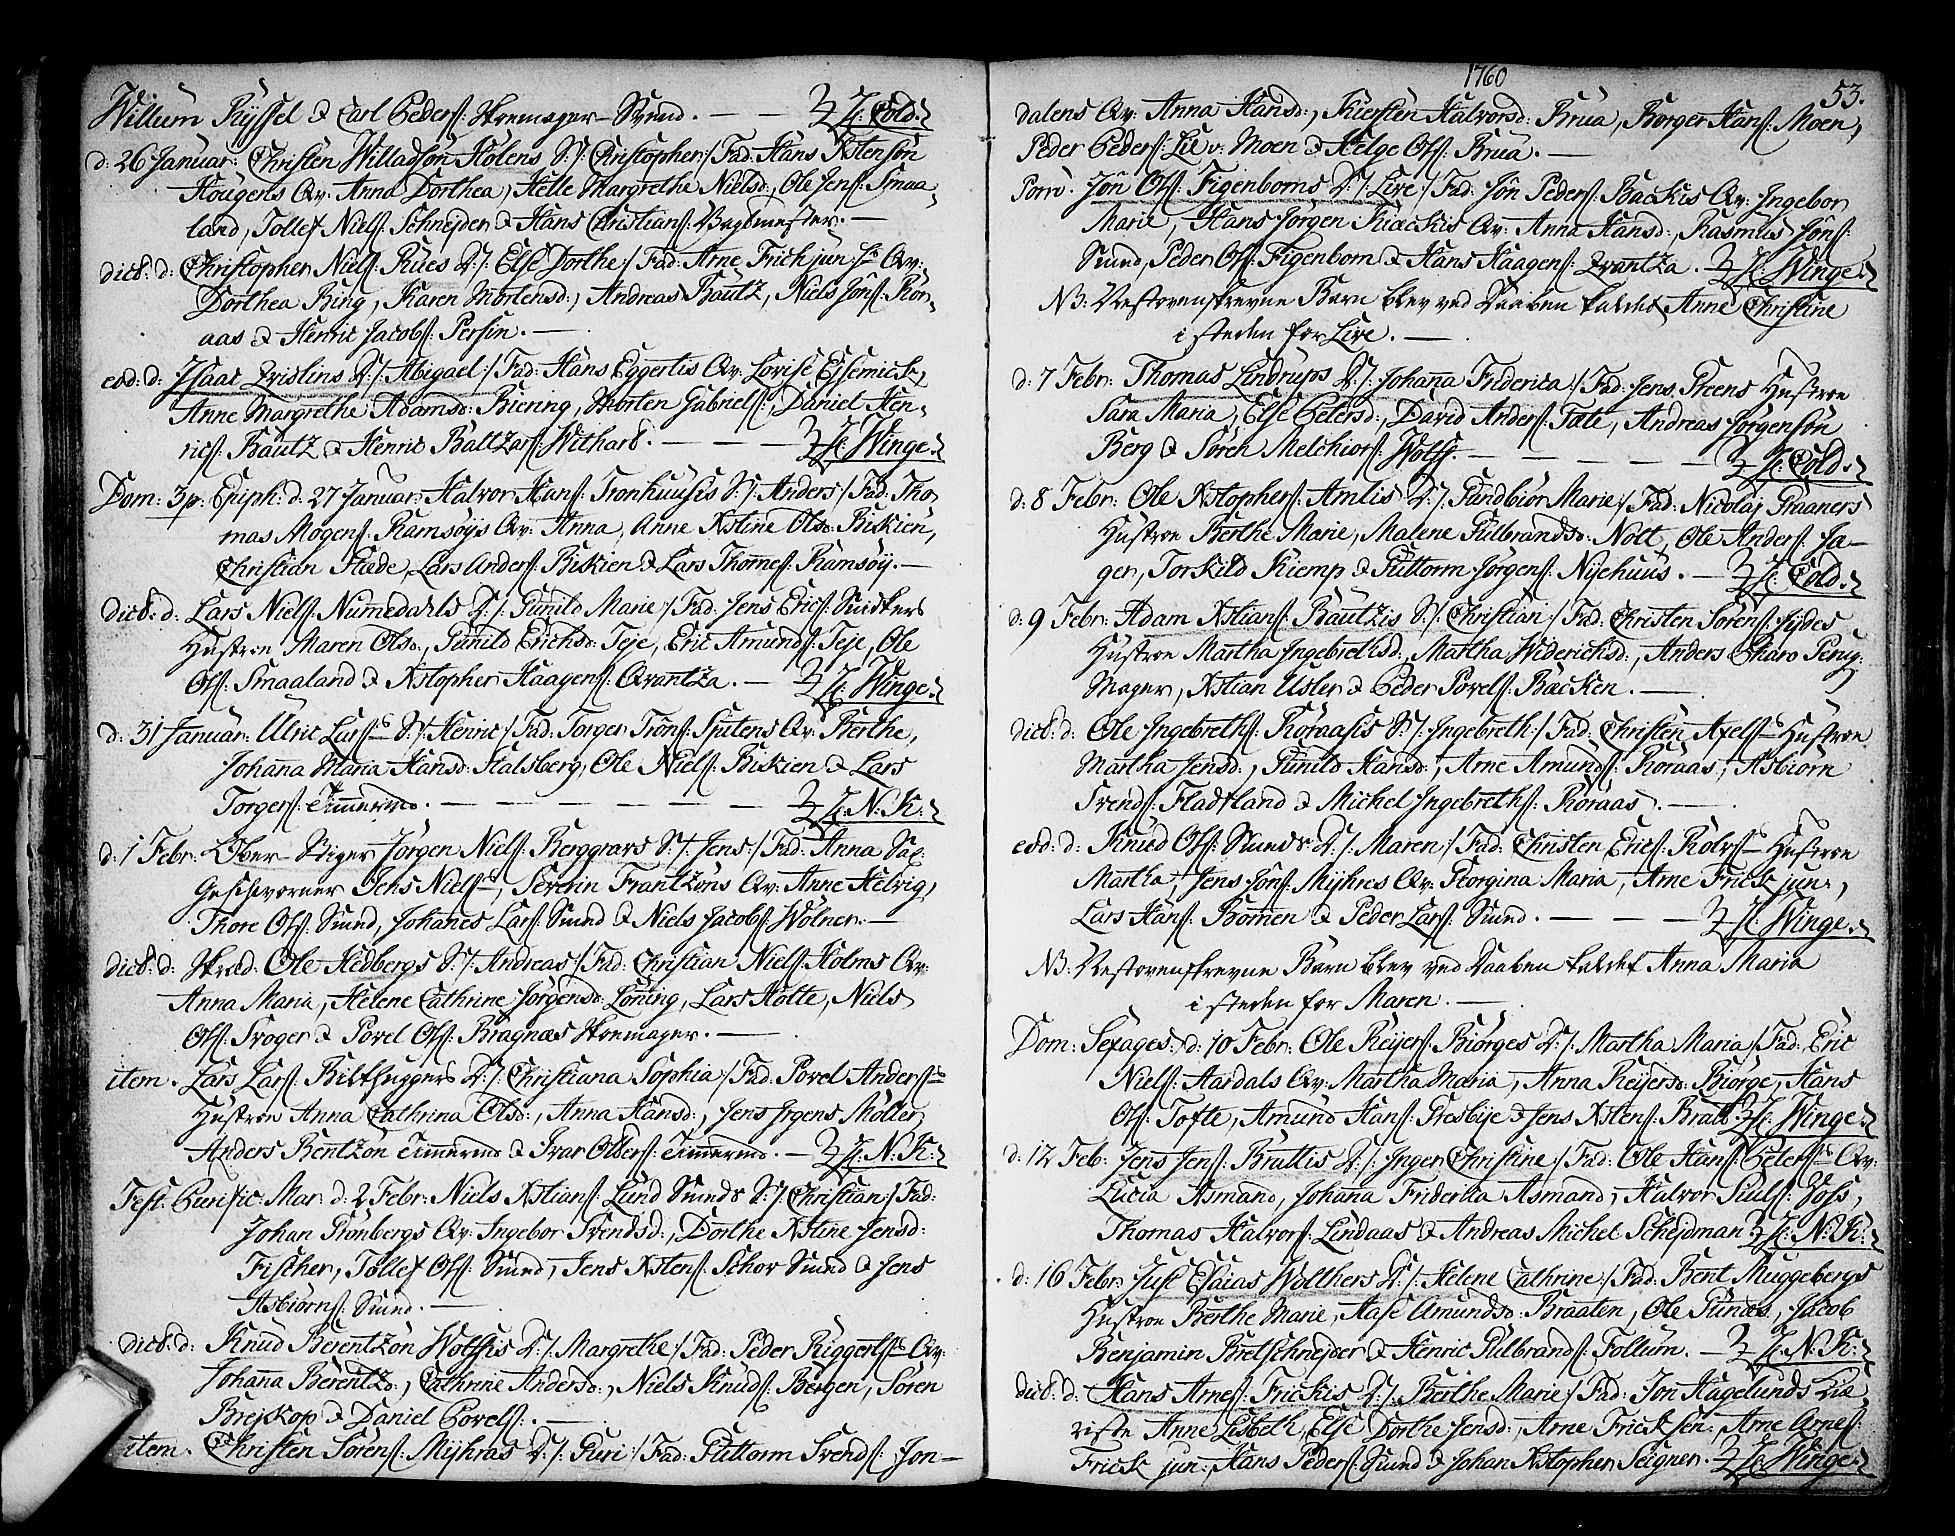 Willum Ryssel & Carl Peders: Skomager-Svend. — — H: Cold.
d: 26 Januar: Christen Willadsön Holens S: /: Christopher /: Fad: Hans Xstensön
Hougens Qv: Anna Dorthea, Helle Margrethe Nielsd:, Ole Jens: Smaa-
land, Tollef Niels: Schnejder & Hans Christians: Bagemester. —
dict: d: Christopher Niels: Rues D: /: Else Dorthe /: Fad: Arne Frich jun: Qv:
Dorthea Bing, Karen Mortensd:, Andreas Bautz, Niels Jöns: Rör-
aas & Henric Jacobs: Persin. —
eod: d: Isaac Qvislins D: /: Abigael /: Fad: Hans Eggertis Qv: Lovise Essemick,
Anne Margrethe Adamsd: Bienng, Morten Gabriels:, Daniel Hen-
rics: Bautz & Henric Baltzars: Withard. — — — H: Winge.
Dom: 3 p: Epiph: d: 27 Januar: Halvor Hans: Tronhuusis S: /: Anders /: Fad: Tho-
mas Mogens: Ramsöys Qv: Anna, Anne Xstine Olsd: Biskien,
Christian Stæde, Lars Anders: Biskien & Lars Thomes: Ramsöy. —
dict: d: Lars Niels: Numedahls D: /: Gunild Marie /: Fad: Jens Erics: Snidkers
Hustroe Maren Olsd:, Gunild Erichsd: Teje, Eric Amunds: Teje, Ole
Ols: Smaaland & Xstopher Haagens: Qvantza. — H: Winge.
d: 31 Januar: Ulric Lars: S: /: Henric /: Fad: Torger Tröns: Sputens Qv: Berthe,
Johana Maria Hansd: Halsberg, Ole Niels: Biskien & Lars
Torgers: Timermd. — — — — — — H: N. K:
d: 1 Febr: Ober-Stiger Jörgen Niels: Berggravs S: /: Jens /: Fad: Anna Sal:
Geschworner Jens Niels:, Severin Frantzöns Qv: Anne Helvig,
Thore Ols: Smed, Johanes Lars: Smed & Niels Jacobs: Wölner. —
dict: d: Skræd: Ole Hedbergs S: /: Andreas /: Fad: Christian Niels: Holms Qv:
Anna Maria, Helene Cathrine Jörgensd: Löning, Lars Holte, Niels
Ols: Troger & Povel Ols: Bragnæs Skomager. —
item. Lars Lars: Bilthuggers D: /: Christiana Sophia /: Fad: Povel Anders:
Hustroe Anna Cathrina Olsd:, Anna Hansd:, Jens Jrgens Möller,
Anders Bentzön Timermd & Ivar Olders: Timermd. — H: N. K:
Fest: Purific: Mar: d: 2 Febr: Niels Xstians: Lund Smeds S: /: Christian /: Fad:
Johan Cronbergs Qv: Ingebor Svendsd:, Dorthe Xstine Jensd:
Fischer, Tollef Ols: Smed, Jens Xstens: Schov Smed & Jens
Asbiörns: Smed. —
dict: d: Knud Berentzön Wolffis D: /: Margrethe /: Fad: Peder Riggerts: Qv:
Johana Berentzd:, Cathrine Andersd:, Niels Knuds: Bergen, Sören
Brejskop & Daniel Povels: —
item. Christen Sörens: Myhras D: /: Guri /: Fad: Guttorm Svends: Jon-
1760
53.
dalens Qv: Anna Hansd:, Kiersten Halvorsd: Brua, Börger Hans: Moen,
Peder Peders: Lie v: Moen & Helge Ols: Brua. —
Jön Ols: Figenboms D: /: Live /: Fad: Jön Peders: Backis Qv: Ingebor
Marie, Hans Jörgen Kiackis Qv: Anna Hansd:, Rasmus Jöns:
Smed, Peder Ols: Figenbom & Hans Haagens: Qvantza. H: Winge.
NB: Nestovenskrevne Barn blev ved Daaben kaldet Anne Christine
i steden for Live. —
d: 7 Febr: Thomas Lindrups D: /: Johana Friderica /: Fad: Jens Preens Hustroe
Sara Maria, Else Petersd:, David Anders: Tote, Andreas Jörgensön
Berg & Sören Melchiors: Wolff. — — — — H: Cold.
d: 8 Febr: Ole Xstophers: Amlis D: /: Gundbiör Marie /: Fad: Nicolaj Graaners
Hustroe Berthe Marie, Malene Gulbrandsd: Nott, Ole Anders: Ja-
ger, Torskild Kiemp & Guttorm Jörgens: Nyehuus. — H: Cold.
d: 9 Febr: Adam Xstians: Bautzis S: /: Christian /: Fad: Christen Sörens: Sydes
Hustroe Martha Ingebrethsd:, Martha Widerichsd:, Anders Charo Perug:
Mager, Xstian Usler & Peder Povels: Backen. —
dict: d: Ole Ingebreths: Röraasis S: /: Ingebreth /: Fad: Christen Axels: Hustroe
Martha Jensd:, Gunild Hansd:, Arne Amunds: Röraas, Asbiörn
Svends: Fladtland & Michel Ingebreths: Röraas. —
eod: d: Knud Ols: Smeds D: /: Maren /: Fad: Christen Erics: Rolvs: Hustroe
Martha, Jens Jöns: Myhres Qv: Georgina Maria, Arne Frick jun:,
Lars Hans: Bömen & Peder Lars: Smed. — — — H: Winge.
NB: Nestovenskrevne Barn blev ved Daaben kaldet Anna Maria
i steden for Maren. —
Dom: Sexages: d: 10 Febr: Ole Reijers: Biörges D: /: Martha Maria /: Fad: Eric
Niels: Aardals Qv: Martha Maria, Anna Reijersd: Biörge, Hans
Ols: Tofte, Amund Hans: Presbye & Jens Xstens: Bratt. H: Winge.
d: 12 Feb: Jens Jens: Bruttis D: /: Inger Christine /: Fad: Ole Hans: Peters: Qv:
Lucia Asmand, Johana Friderica Asmand, Halvor Pauls: Voss,
Thomas Halvors: Lindaas & Andreas Michel Schejdman H: N: K:
d: 16 Febr: Just Esaias Wolthers D: /: Helene Cathrine /: Fad: Bent Muggebergs
Hustroe Berthe Marie, Aase Amundsd: Braaten, Ole Gunæs, Jacob
Benjamin Bretschnejder & Henric Gulbrands: Follum. — H: N: K:
dict: d: Hans Arnes: Frickis D: /: Berthe Marie /: Fad: Jon Hagelunds Kiæ-
riste Anne Lisbeth, Else Dorthe Jensd:, Arne Frick sen:, Arne Arnes:
Frick jun:, Hans Peders: Smed & Johan Xstopher Seigner. H: Winge.